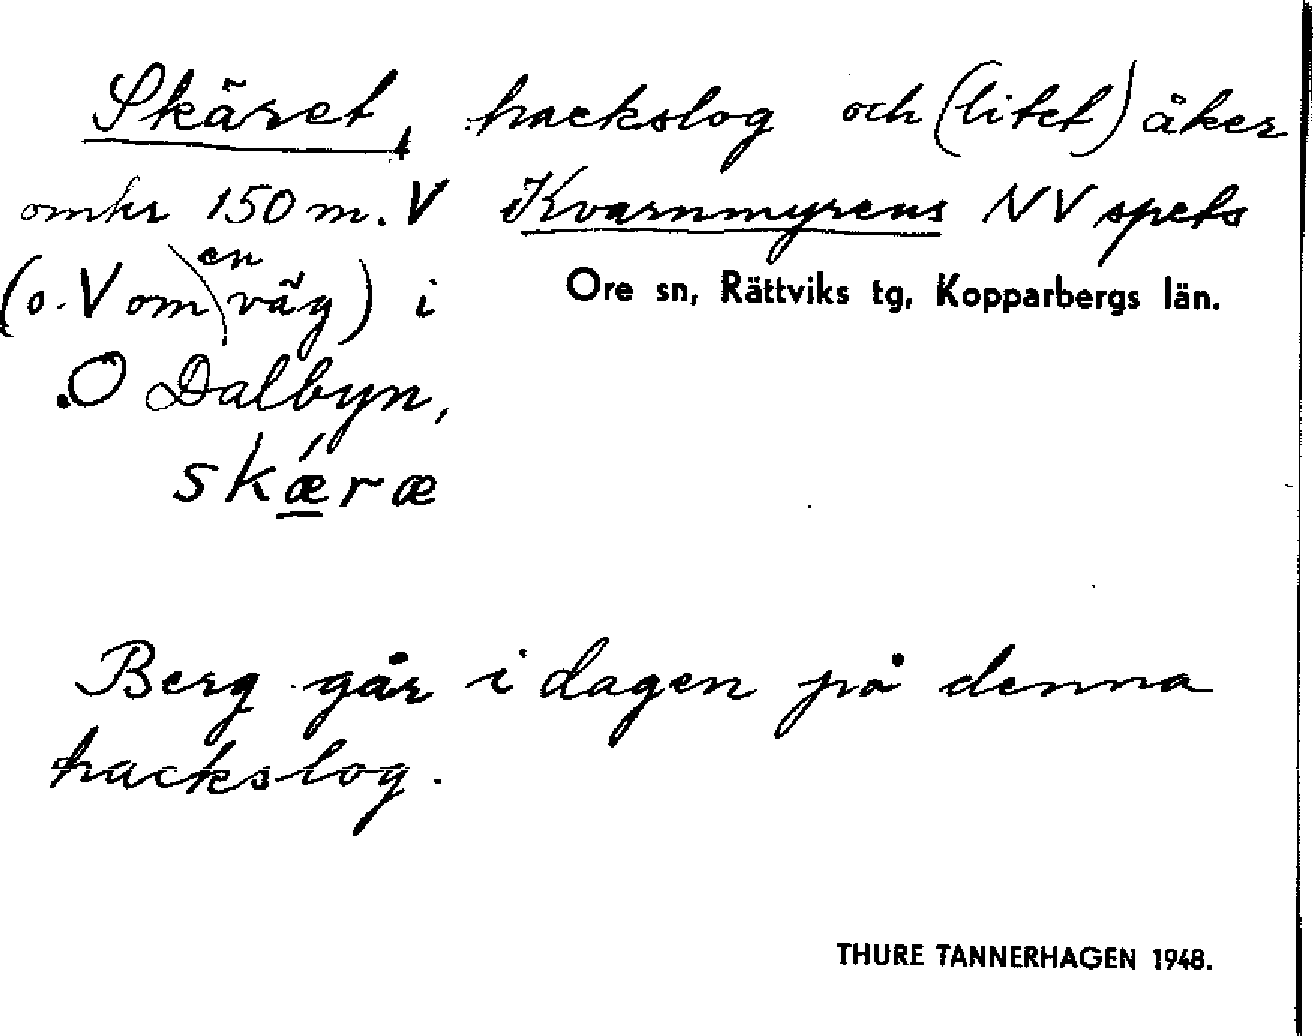 Skäret, hackslog och (litet) åker
omkr 150 m. V Kvarnmyrens NV spets
(o. V om en väg) i
Ore sn, Rättviks tg, Kopparbergs län.
Ö Dalbyn,
skǽræ
Berg går i dagen på denna
hackslog.
THURE TANNERHAGEN 1948.